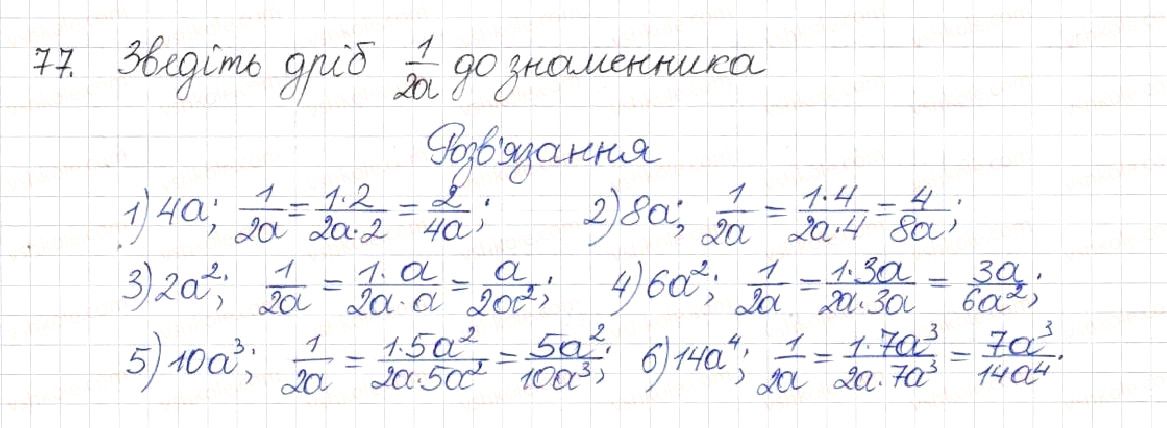 77. Зведіть дріб 1/2a до знаменника
Розв'язання
1) 4a; 1/2a = 1·2/2a·2 = 2/4a; 2) 8a; 1/2a = 1·4/2a·4 = 4/8a;
3) 2a²; 1/2a = 1·a/2a·a = a/2a²; 4) 6a²; 1/2a = 1·3a/2a·3a = 3a/6a²;
5) 10a³; 1/2a = 1·5a²/2a·5a² = 5a²/10a³; 6) 14a⁴; 1/2a = 1·7a³/2a·7a³ = 7a³/14a⁴.